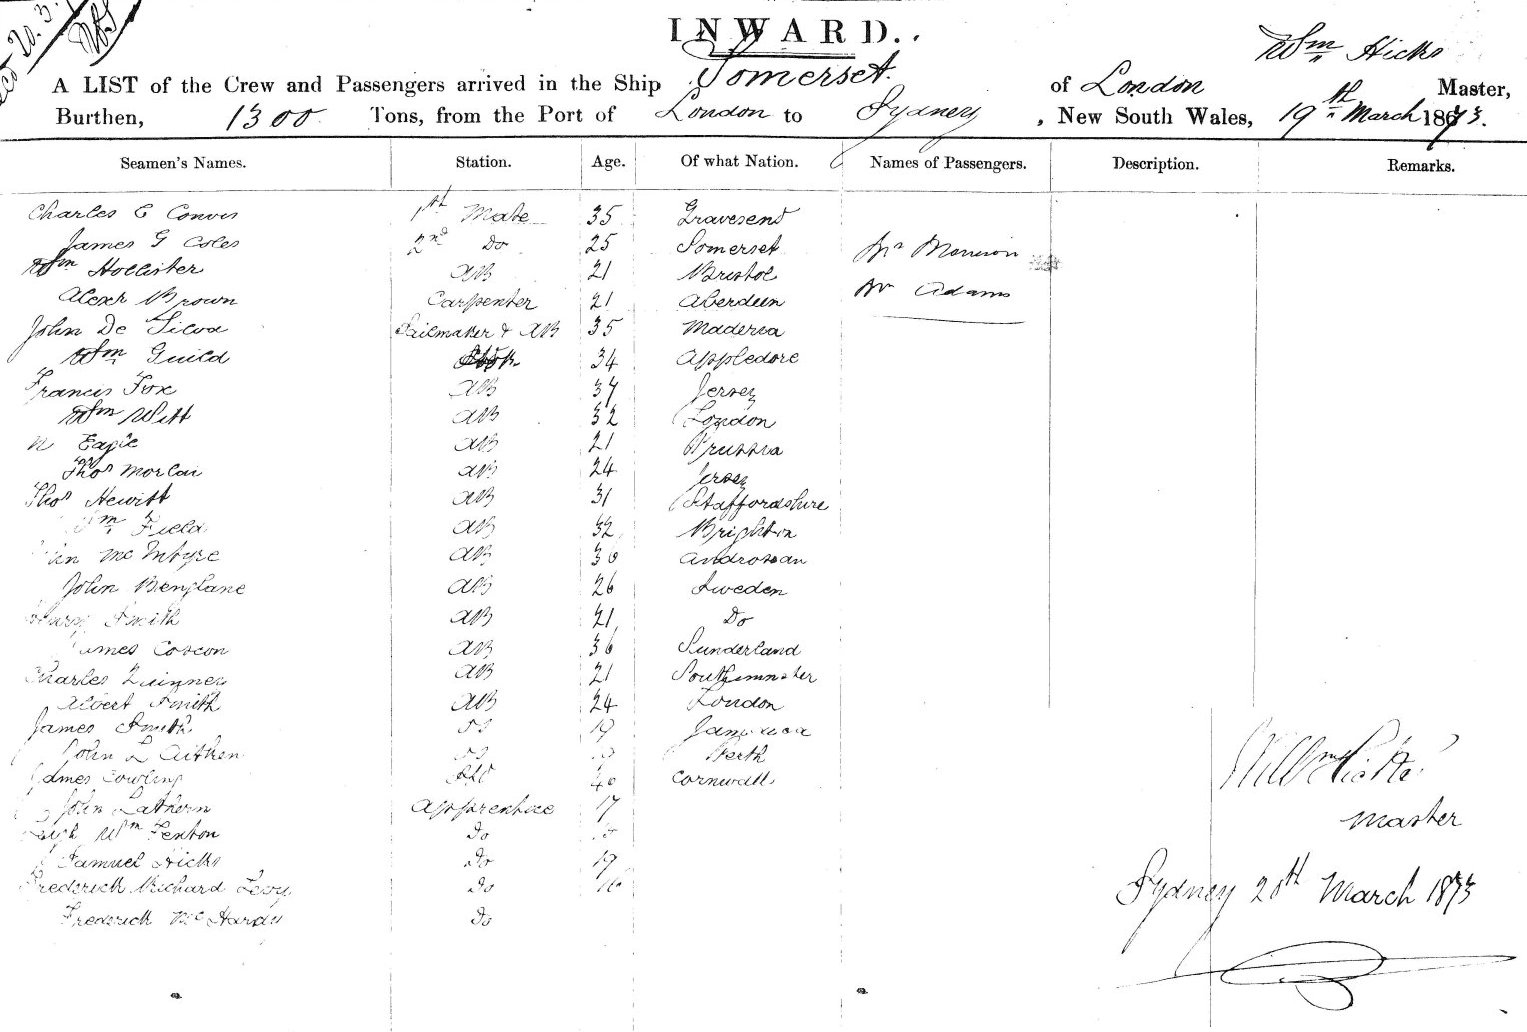 INWARD.
Wm Hicks
A LIST of the Crew and Passengers arrived in the Ship Somerset. of London Master,
Burthen, 1300 Tons, from the Port of London to Sydney, New South Wales, 19th March 1873.
Seamen's Names. Station. Age. Of what Nation. Names of Passengers. Description. Remarks.
Charles E 1st Mate 35 Gravesend
James G Coles 2nd Do 25 Somerset
Wm Hollister AB 21 Bristol
Mr Adams
Alexr Brown Carpenter 21 Aberdeen
John De Silva Sailmaker & AB 35 Maderia
Wm Guild 34 Appledore
Francis Fox AB 37 Jersey
Wm Witt AB 32 London
N Eagle AB 21 Prussia
Thos AB 24 Jersey
Thos Hewitt AB 31 Staffordshire
Wm Field AB 32 Brighton
Mc Intyre AB 30
John AB 26 Sweden
Henry Smith AB 21 Do
James AB 36 Sunderland
Charles AB 21 Southminster
Albert Smith AB 24 London
James Smith OS 19 Jamaica
John L Aitken OS Perth
James Cowling 40 Cornwall
John Lathern Apprentice 17
Wm Fenton Do
Samuel Hicks Do 19
Frederick Richard Levy Do 16
Frederick Mc Hardy Do
Willm Hicks
Master
Sydney 20th March 1873